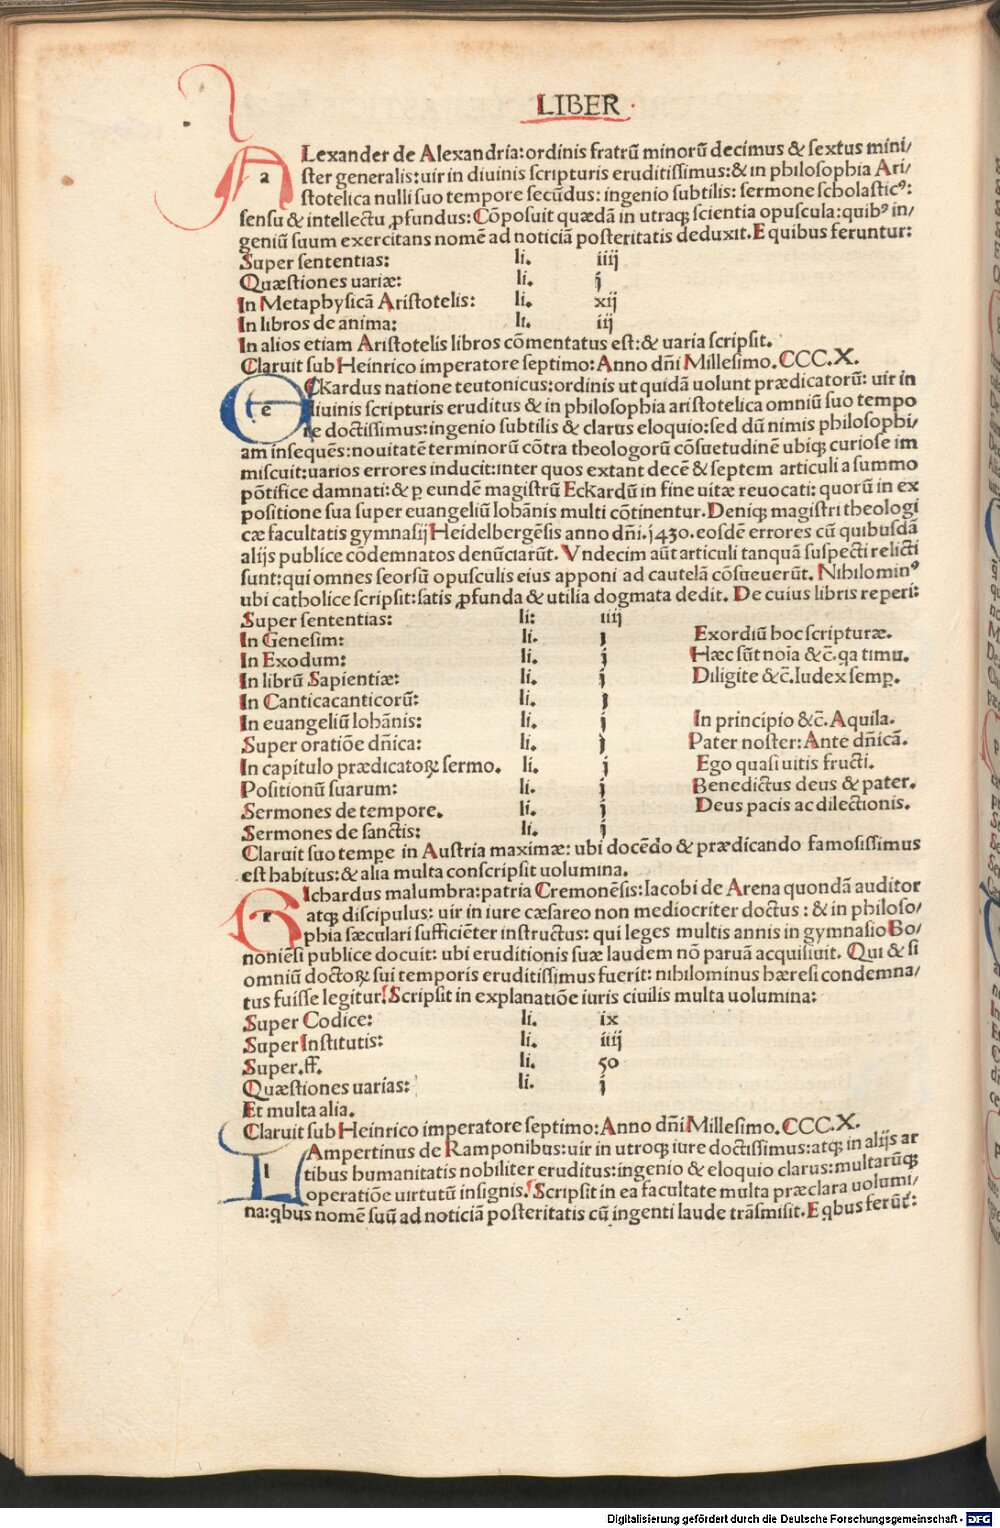 LIBER ·
ALexander de Alexandria: ordinis fratrū minorū decimus & sextus mini/
ster generalis: uir in diuinis scripturis eruditissimus: & in philosophia Ari/
stotelica nulli suo tempore secūdus: ingenio subtilis: sermone scholasticꝰ:
sensu & intellectu ꝓfundus: Cōposuit quædā in utraqꝫ scientia opuscula: quibꝰ in/
geniū suum exercitans nomē ad noticiā posteritatis deduxit. E quibus feruntur:
Super sententias: li. iiij
Quæstiones uariæ: li. j
In Metaphysicā Aristotelis: li. xij
In libros de anima: li. iij
In alios etiam Aristotelis libros cōmentatus est: & uaria scripsit.
Claruit sub Heinrico imperatore septimo: Anno dn̄i Millesimo. CCC. X.
ECkardus natione teutonicus: ordinis ut quidā uolunt prædicatorū: uir in
diuinis scripturis eruditus & in philosophia aristotelica omniū suo tempo
re doctissimus: ingenio subtilis & clarus eloquio: sed dū nimis philosophi/
am insequēs: nouitatē terminorū cōtra theologorū cōsuetudinē ubiqꝫ curiose im
miscuit: uarios errores inducit: inter quos extant decē & septem articuli a summo
pōtifice damnati: & p eundē magistrū Eckardū in fine uitæ reuocati: quorū in ex
positione sua super euangeliū Iohānis multi cōtinentur. Deniqꝫ magistri theologi
cæ facultatis gymnasij Heidelbergēsis anno dn̄i. 1430. eosdē errores cū quibusdā
alijs publice cōdemnatos denūciarūt. Vndecim aūt articuli tanquā suspecti relicti
sunt: qui omnes seorsū opusculis eius apponi ad cautelā cōsueuerūt. Nihilominꝰ
ubi catholice scripsit: satis ꝓfunda & utilia dogmata dedit. De cuius libris reperi:
Super sententias: li: iiij
In Genesim: li. j Exordiū hoc scripturæ.
In Exodum: li. j Hæc sūt noīa &c̄. qa timu.
In librū Sapientiæ: li. j Diligite &c̄. Iudex semp.
In Canticacanticorū: li. j
In euangeliū Iohānis: li. j In principio &c̄. Aquila.
Super oratiōe dn̄ica: li. j Pater noster: Ante dn̄icā.
In capitulo prædicatoꝝ sermo. li. j Ego quasi uitis fructi.
Positionū suarum: li. j Benedictus deus & pater.
Sermones de tempore. li. j Deus pacis ac dilectionis.
Sermones de sanctis: li. j
Claruit suo tempe in Austria maximæ: ubi docēdo & prædicando famosissimus
est habitus: & alia multa conscripsit uolumina.
RIchardus malumbra: patria Cremonēsis: Iacobi de Arena quondā auditor
atqꝫ discipulus: uir in iure cæsareo non mediocriter doctus: & in philoso/
phia sæculari sufficiēter instructus: qui leges multis annis in gymnasio Bo/
noniēsi publice docuit: ubi eruditionis suæ laudem nō paruā acquisiuit. Qui & si
omniū doctoꝝ sui temporis eruditissimus fuerit: nihilominus hæresi condemna/
tus fuisse legitur. Scripsit in explanatiōe iuris ciuilis multa uolumina:
Super Codice: li. ix
Super Institutis: li. iiij
Super. ff. li. 50
Quæstiones uarias: li. j
Et multa alia.
Claruit sub Heinrico imperatore septimo: Anno dn̄i Millesimo. CCC. X.
LAmpertinus de Ramponibus: uir in utroqꝫ iure doctissimus: atqꝫ in alijs ar
tibus humanitatis nobiliter eruditus: ingenio & eloquio clarus: multarūqꝫ
operatiōe uirtutū insignis. Scripsit in ea facultate multa præclara uolumi/
na: qbus nomē suū ad noticiā posteritatis cū ingenti laude trāsmisit. E qbus ferūt́:
Digitalisierung gefördert durch die Deutsche Forschungsgemeinschaft - DFG